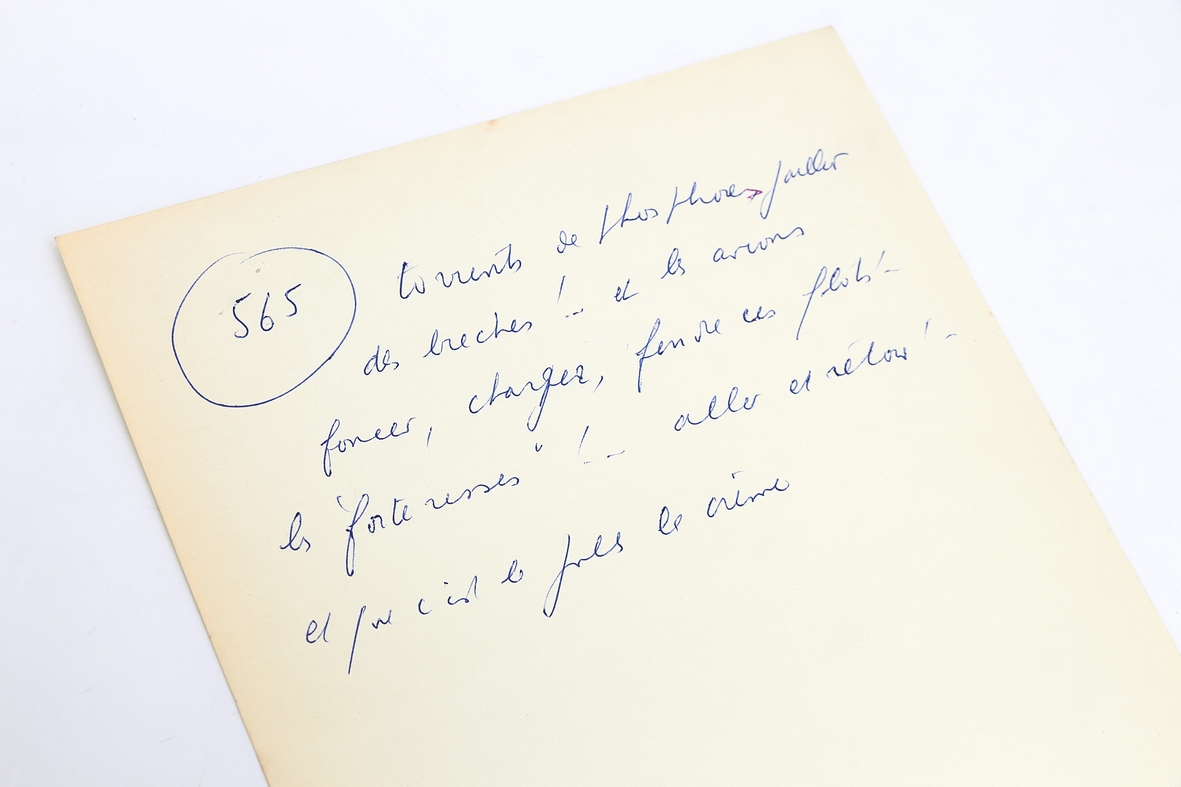 565
torrents de phosphores jaillir
des brèches !.. et les avions
foncer, charger, fendre ces flots !..
les "forteresses" !.. aller et retour !..
et que c'est le le crime